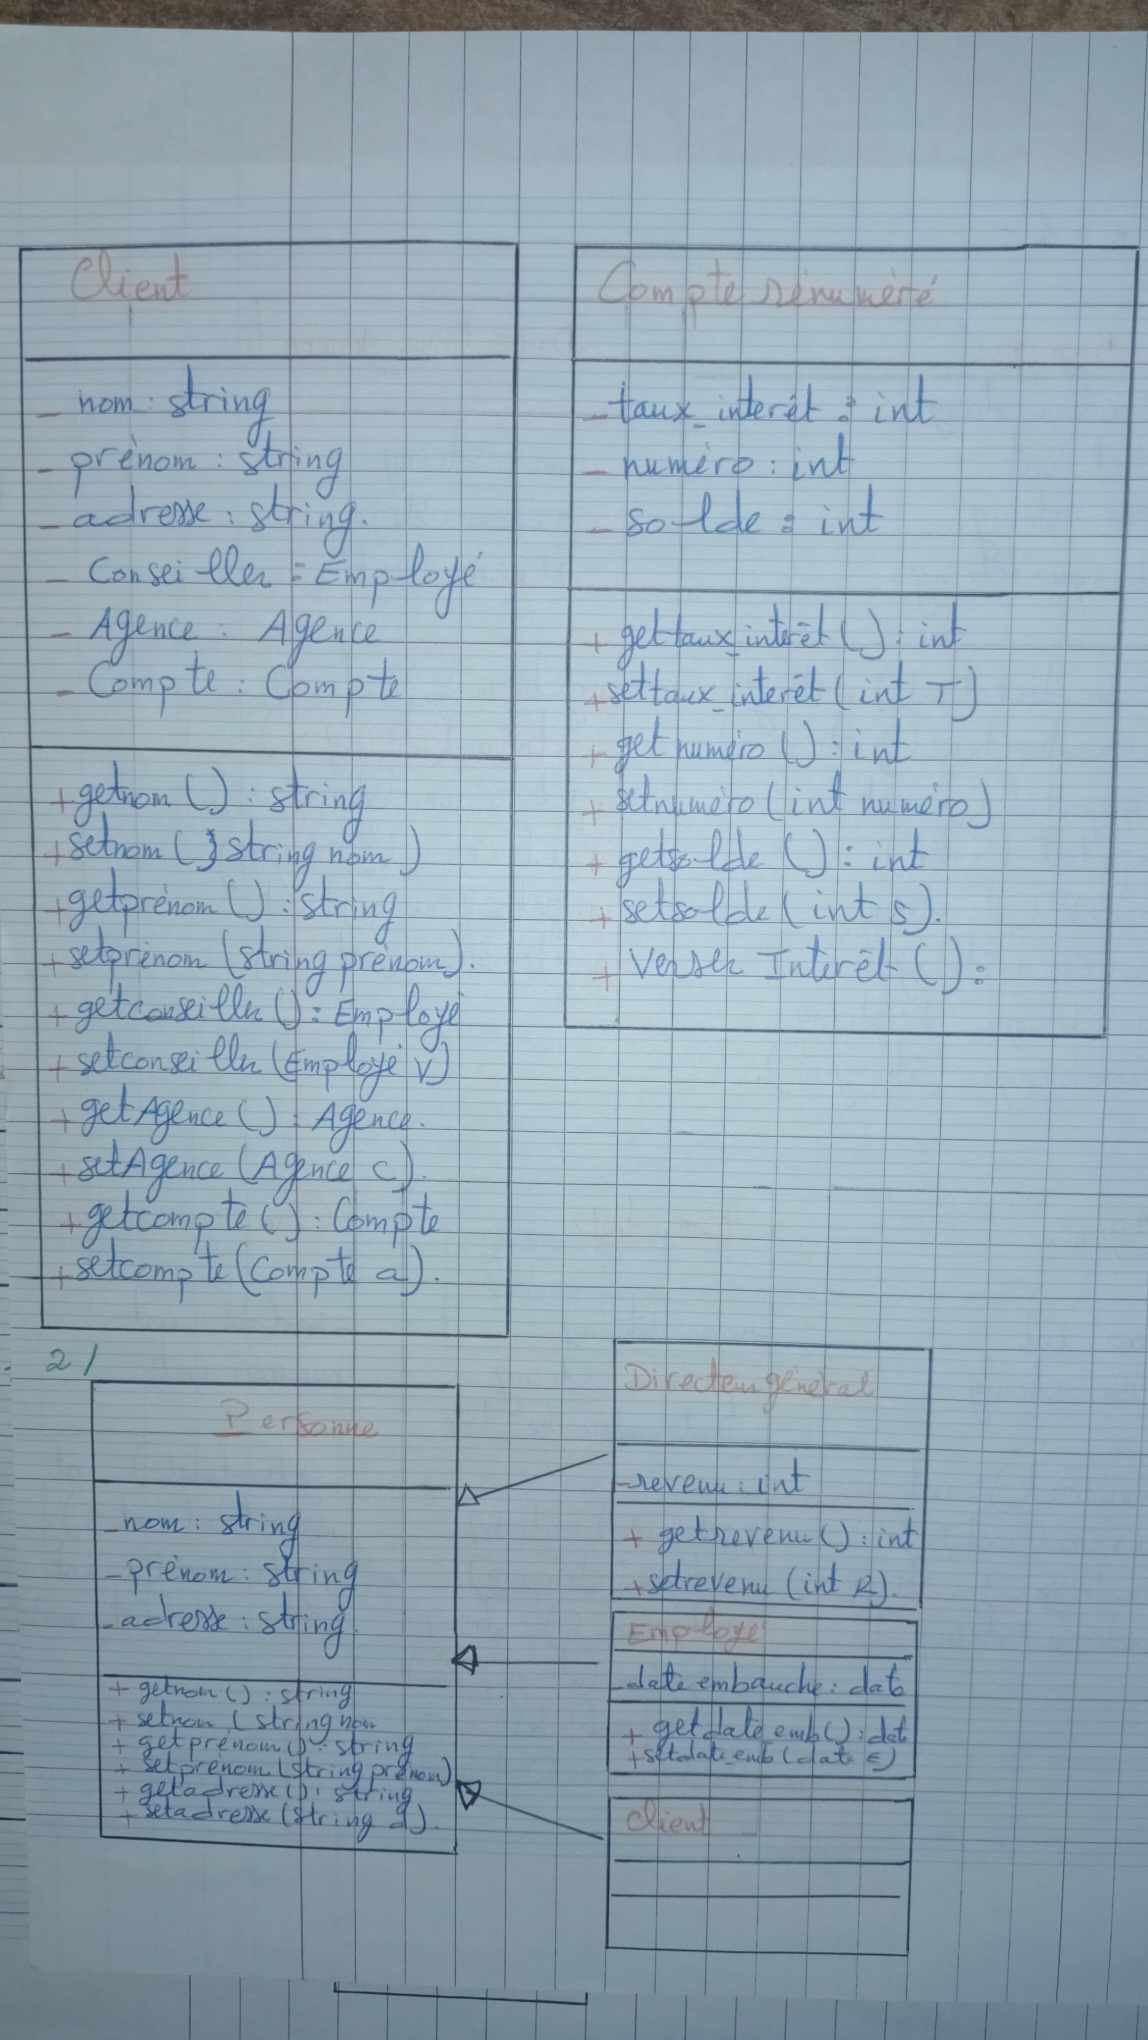 Client
- nom : string
- prénom : string
- adresse : string.
- Conseiller : Employé
- Agence : Agence
- Compte : Compte
+ getnom () : string
+ setnom ( string nom )
+ getprénom () : string
+ setprénom (string prénom).
+ getconseiller () : Employé
+ setconseiller (Employé v)
+ getAgence () : Agence.
+ setAgence (Agence c).
+ getcompte () : Compte
+ setcompte (Compte a).
Compte rénuméré
- taux_interêt : int
- numéro : int
- solde : int
+ gettaux_interêt () : int
+ settaux_interêt ( int T)
+ getnuméro () : int
+ setnuméro (int numéro)
+ getsolde () : int
+ setsolde ( int s).
+ Verser Interêt () :
2/
Personne
- nom : string
- prénom : string
- adresse : string
+ getnom () : string
+ setnom ( string nom
+ getprénom () : string
+ setprénom (string prénom)
+ getadresse () : string
+ setadresse (string d).
Directeur général
- revenu : int
+ getrevenu () : int
+ setrevenu (int R).
Employé
- date embauche : date
+ getdate_emb() : dat
+ setdate_emb (date E)
Client